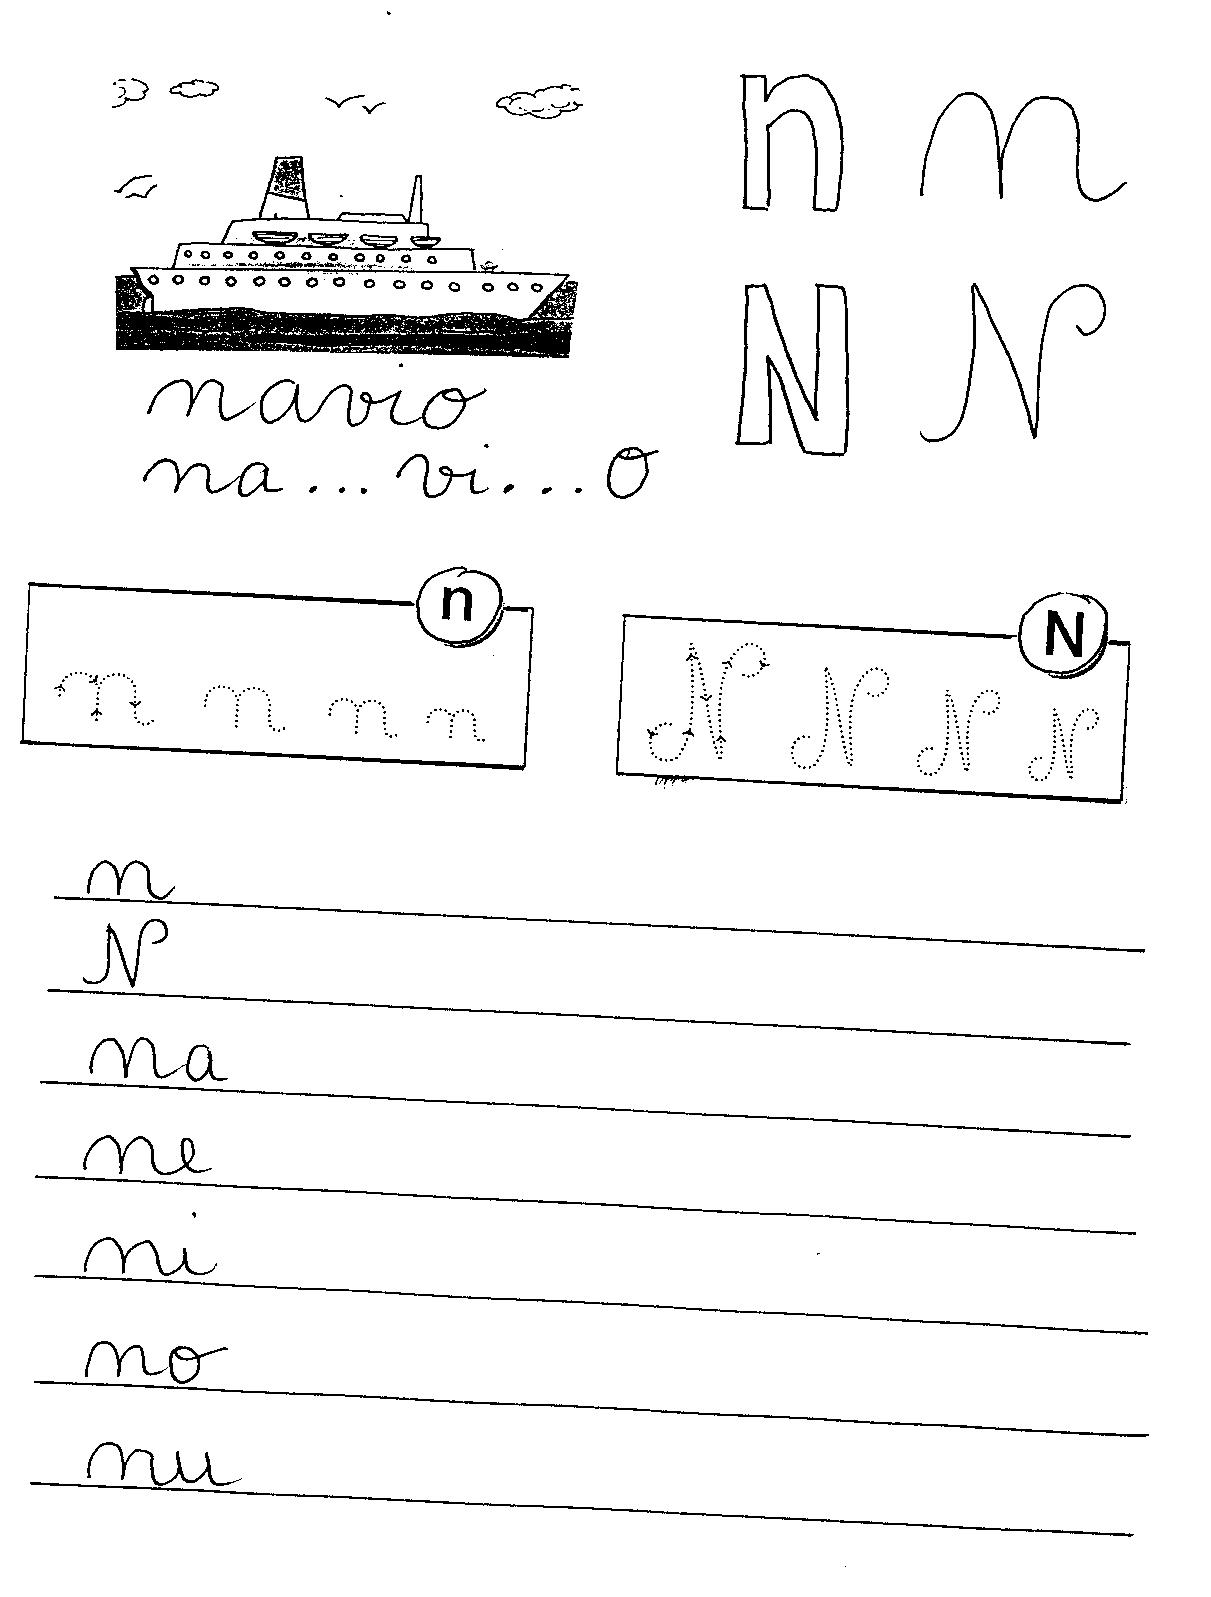 n n
N N
navio
na... vi... o
n
n n n n
N
N N N N
n
N
na
ne
ni
no
nu